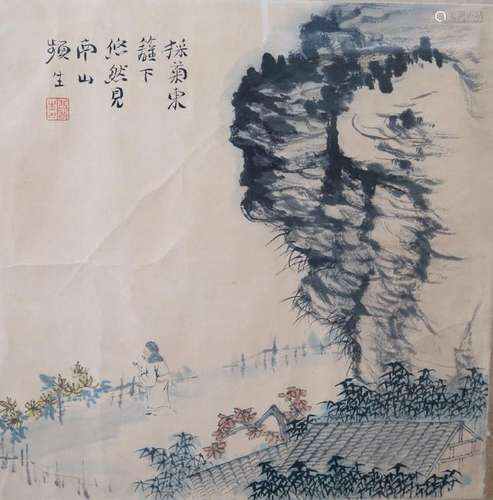 採菊東
籬下
悠然見
南山
頻生